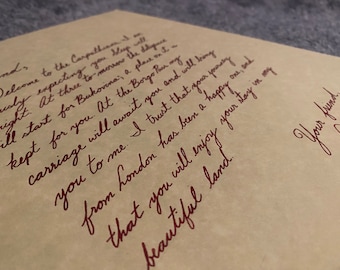 nd,
Welcome to the Carpathians. I am
iously expecting you. Sleep well
night. At three to-morrow the diligence
will start for Bukovina; a place in it is
kept for you. At the Borgo Pass my
carriage will await you and will bring
you to me. I trust that your journey
from London has been a happy one, and
that you will enjoy your stay in my
beautiful land.
Your friend,